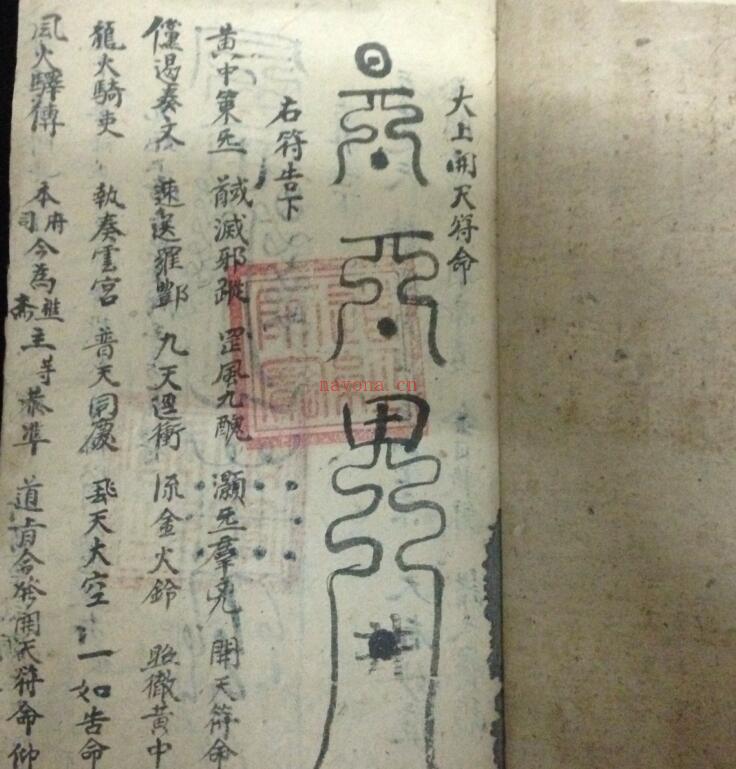 大上開天符命
右符告下
黄中策炁 馘滅邪蹤 罡風九醜 灝炁羣兇 開天符命
儻遏奏文 速送羅酆 九天遥衝 流金火鈴 照徹黄中
龍火騎吏 執奏雲宫 普天同慶 飛天大空 一如告命
風火驛傳 本府司今為進齋主等恭準 道肯令發開天符命仰
nayona.cn